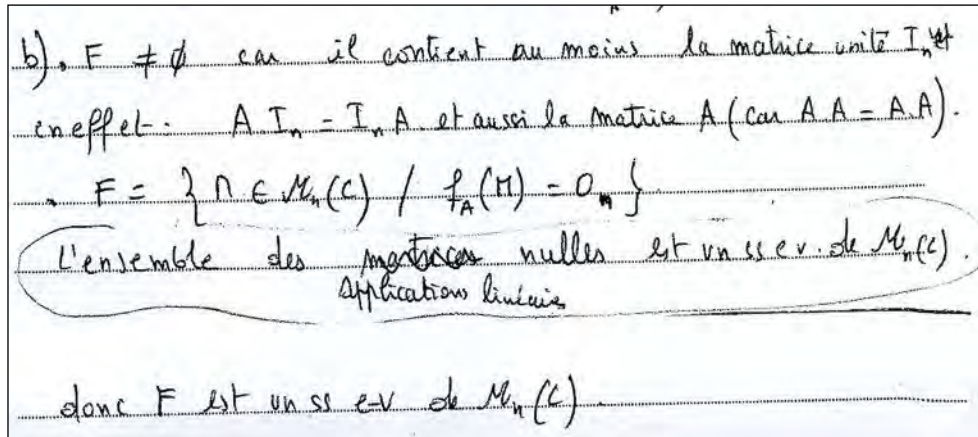 b). F ≠ ∅ car il contient au moins la matrice unité Iₙ et
en effet : A Iₙ = Iₙ A et aussi la matrice A (car A.A = A.A).
. F = { M ∈ Mₙ(C) / f_A(M) = 0ₙ }
L'ensemble des matrices nulles est un ss e.v. de Mₙ(C).
applications linéaires
donc F est un ss e-v de Mₙ(C).